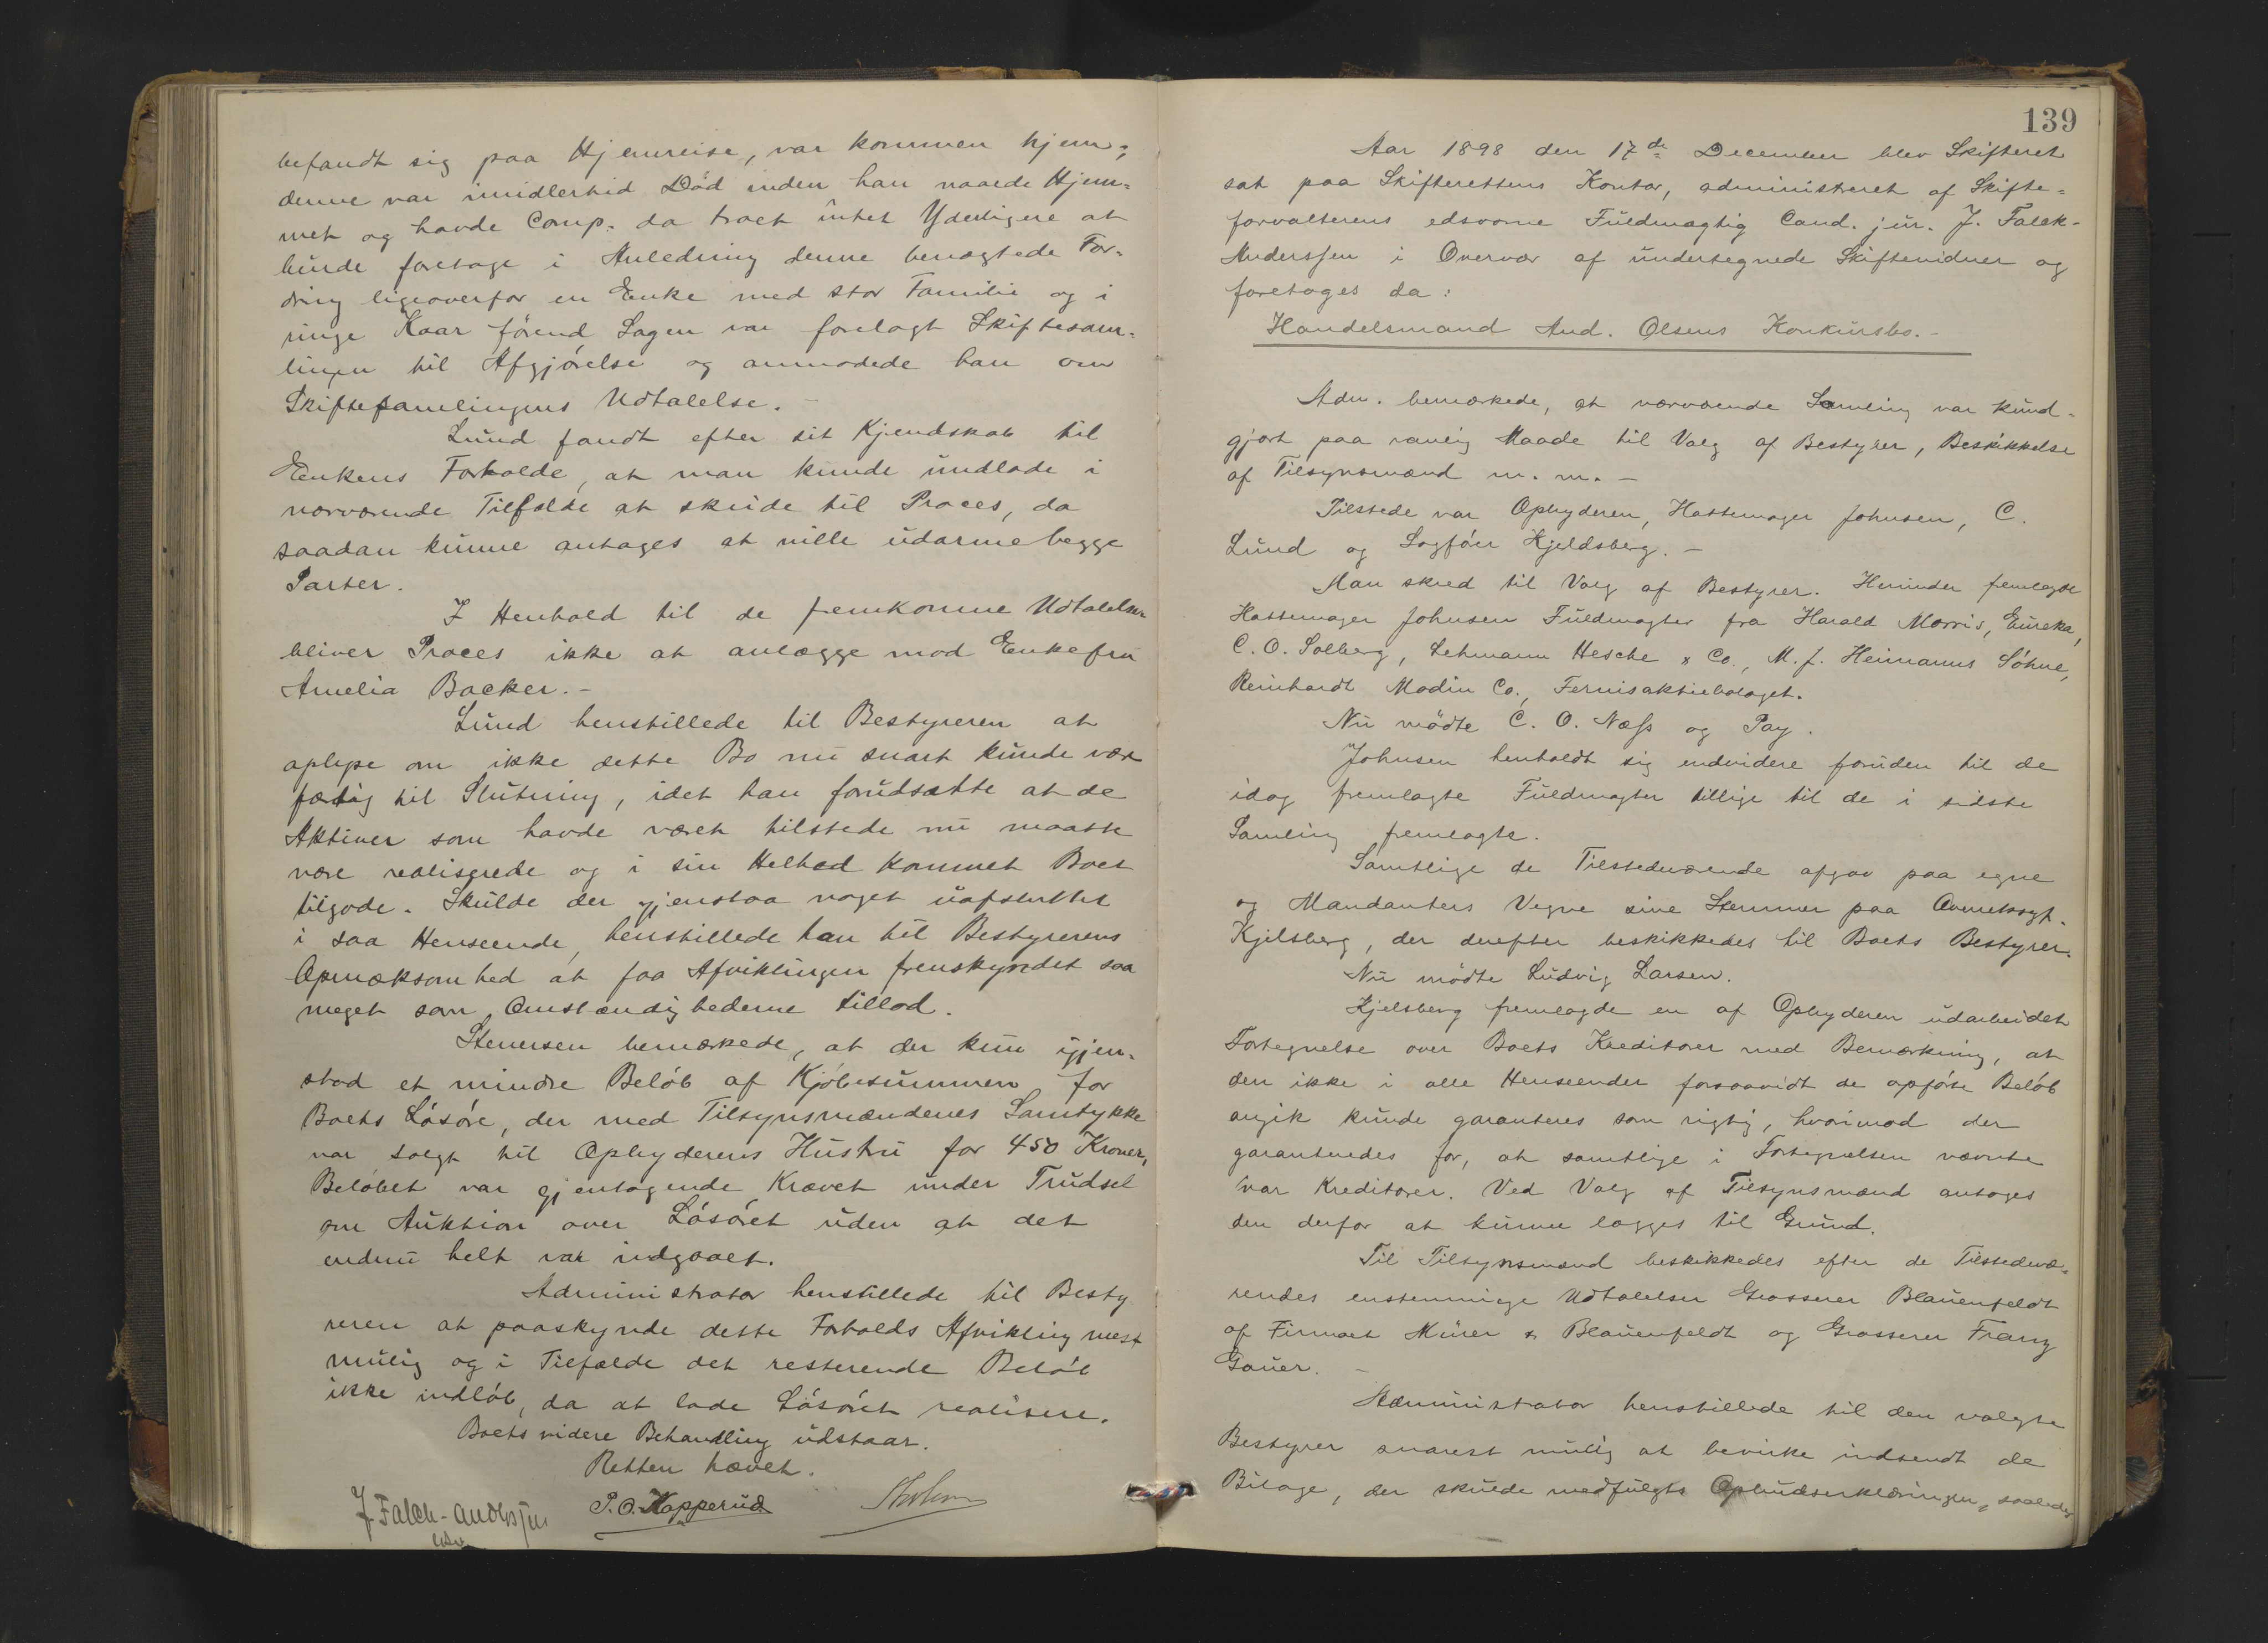 befandt sig paa Hjemreise, var kommen hjem;
denne var imidlertid Død inden han naaede Hjem=
met og havde Comp. da troet intet Yderligere at
burde foretage i Anledning denne benægtede For-
dring ligeoverfor en Enke med stor Familie og i
ringe Kaar førend Sagen var forelagt Skiftesam-
lingen til Afgjørelse og anmodede han om
Skiftesamlingens Udtalelse. -
Lund fandt efter sit Kjendskab til
Enkens Forholde, at man kunde undlade i
nærværende Tilfælde at skride til Proces, da
saadan kunne antages at ville udarme begge
Parter.
I Henhold til de fremkomne Udtalelser
bliver Proces ikke at anlægge mod Enkefru
Amelia Backer. -
Lund henstillede til Bestyreren at
oplyse om ikke dette Bo nu snart kunde være
færdig til Slutning, idet han forudsatte at de
Aktiver som havde været tilstede nu maatte
være realiserede og i sin Helhed kommet Boet
tilgode. Skulde der gjenstaa noget uafsluttet
i saa Henseende, henstillede han til Bestyrerens
Opmærksomhed at faa Afviklingen fremskyndet saa
meget som Omstændighederne tillod.
Stenersen bemærkede, at der kun igjen-
stod et mindre Beløb af Kjøbesummen for
Boets Løsøre, der med Tilsynsmændenes Samtykke
var solgt til Opbyderens Hustru for 450 Kroner,
Beløbet var gjentagende Krævet under Trudsel
om Auktion over Løsøret uden at det
endnu helt var indgaaet.
Administrator henstillede til Besty
reren at paaskynde dette Forholds Afvikling mest
mulig og i Tilfælde det resterende Beløb
ikke indløb, da at lade Løsøret realisere.
Boets videre Behandling udstaar.
Retten hævet.
J. Falck-Anderssen P. O. Kopperud
139
Aar 1898 den 17de December blev Skifteret
sat paa Skifterettens Kontor, administreret af Skifte=
forvalterens edsvorne Fuldmægtig Cand. jur. J. Falck-
Anderssen i Overvær af undertegnede Skiftevidner og
foretoges da:
Handelsmand And. Olsens Konkursbo. -
Adm. bemærkede, at nærværende Samling var kund-
gjort paa vanlig Maade til Valg af Bestyrer, Beskikkelse
af Tilsynsmænd m. m. -
Tilstede var Opbyderen, Hattemager Johnsen, C.
Lund og Sagfører Kjeldsberg. -
Man skred til Valg af Bestyrer. Herunder fremlagde
Hattemager Johnsen Fuldmagter fra Harald Morris, Eureka,
C. O. Solberg, Lehmann Hesche & Co., M. J. Heimanns Söhne,
Reinhardt Modin Co., Fernisaktiebolaget.
Nu mødte C. O. Næss og Pay.
Johnsen henholdt sig endvidere foruden til de
idag fremlagte Fuldmagter tillige til de i sidste
Samling fremlagte.
Samtlige de Tilstedeværende afgav paa egne
og Mandanters Vegne sine Stemmer paa Overretssagf.
Kjelsberg, der derefter beskikkedes til Boets Bestyrer.
Nu mødte Ludvig Larsen.
Kjelsberg fremlagde en af Opbyderen udarbeidet
Fortegnelse over Boets Kreditorer med Bemærkning, at
den ikke i alle Henseender forsaavidt de opførte Beløb
angik kunde garanteres som rigtig, hvorimod der
garanteredes for, at samtlige i Fortegnelsen nævnte
var Kreditorer. Ved Valg af Tilsynsmænd antoges
den derfor at kunne lægges til Grund.
Til Tilsynsmænd beskikkedes efter de Tilstedevæ-
rendes enstemmige Udtalelser Grosserer Blauenfeldt
af Firmaet Mürer & Blauenfeldt og Grosserer Franz
Gauer. -
Administrator henstillede til den valgte
Bestyrer snarest mulig at bevirke indsendt de
Bilage, der skulde medfulgte Opbudserklæringen, saaledes